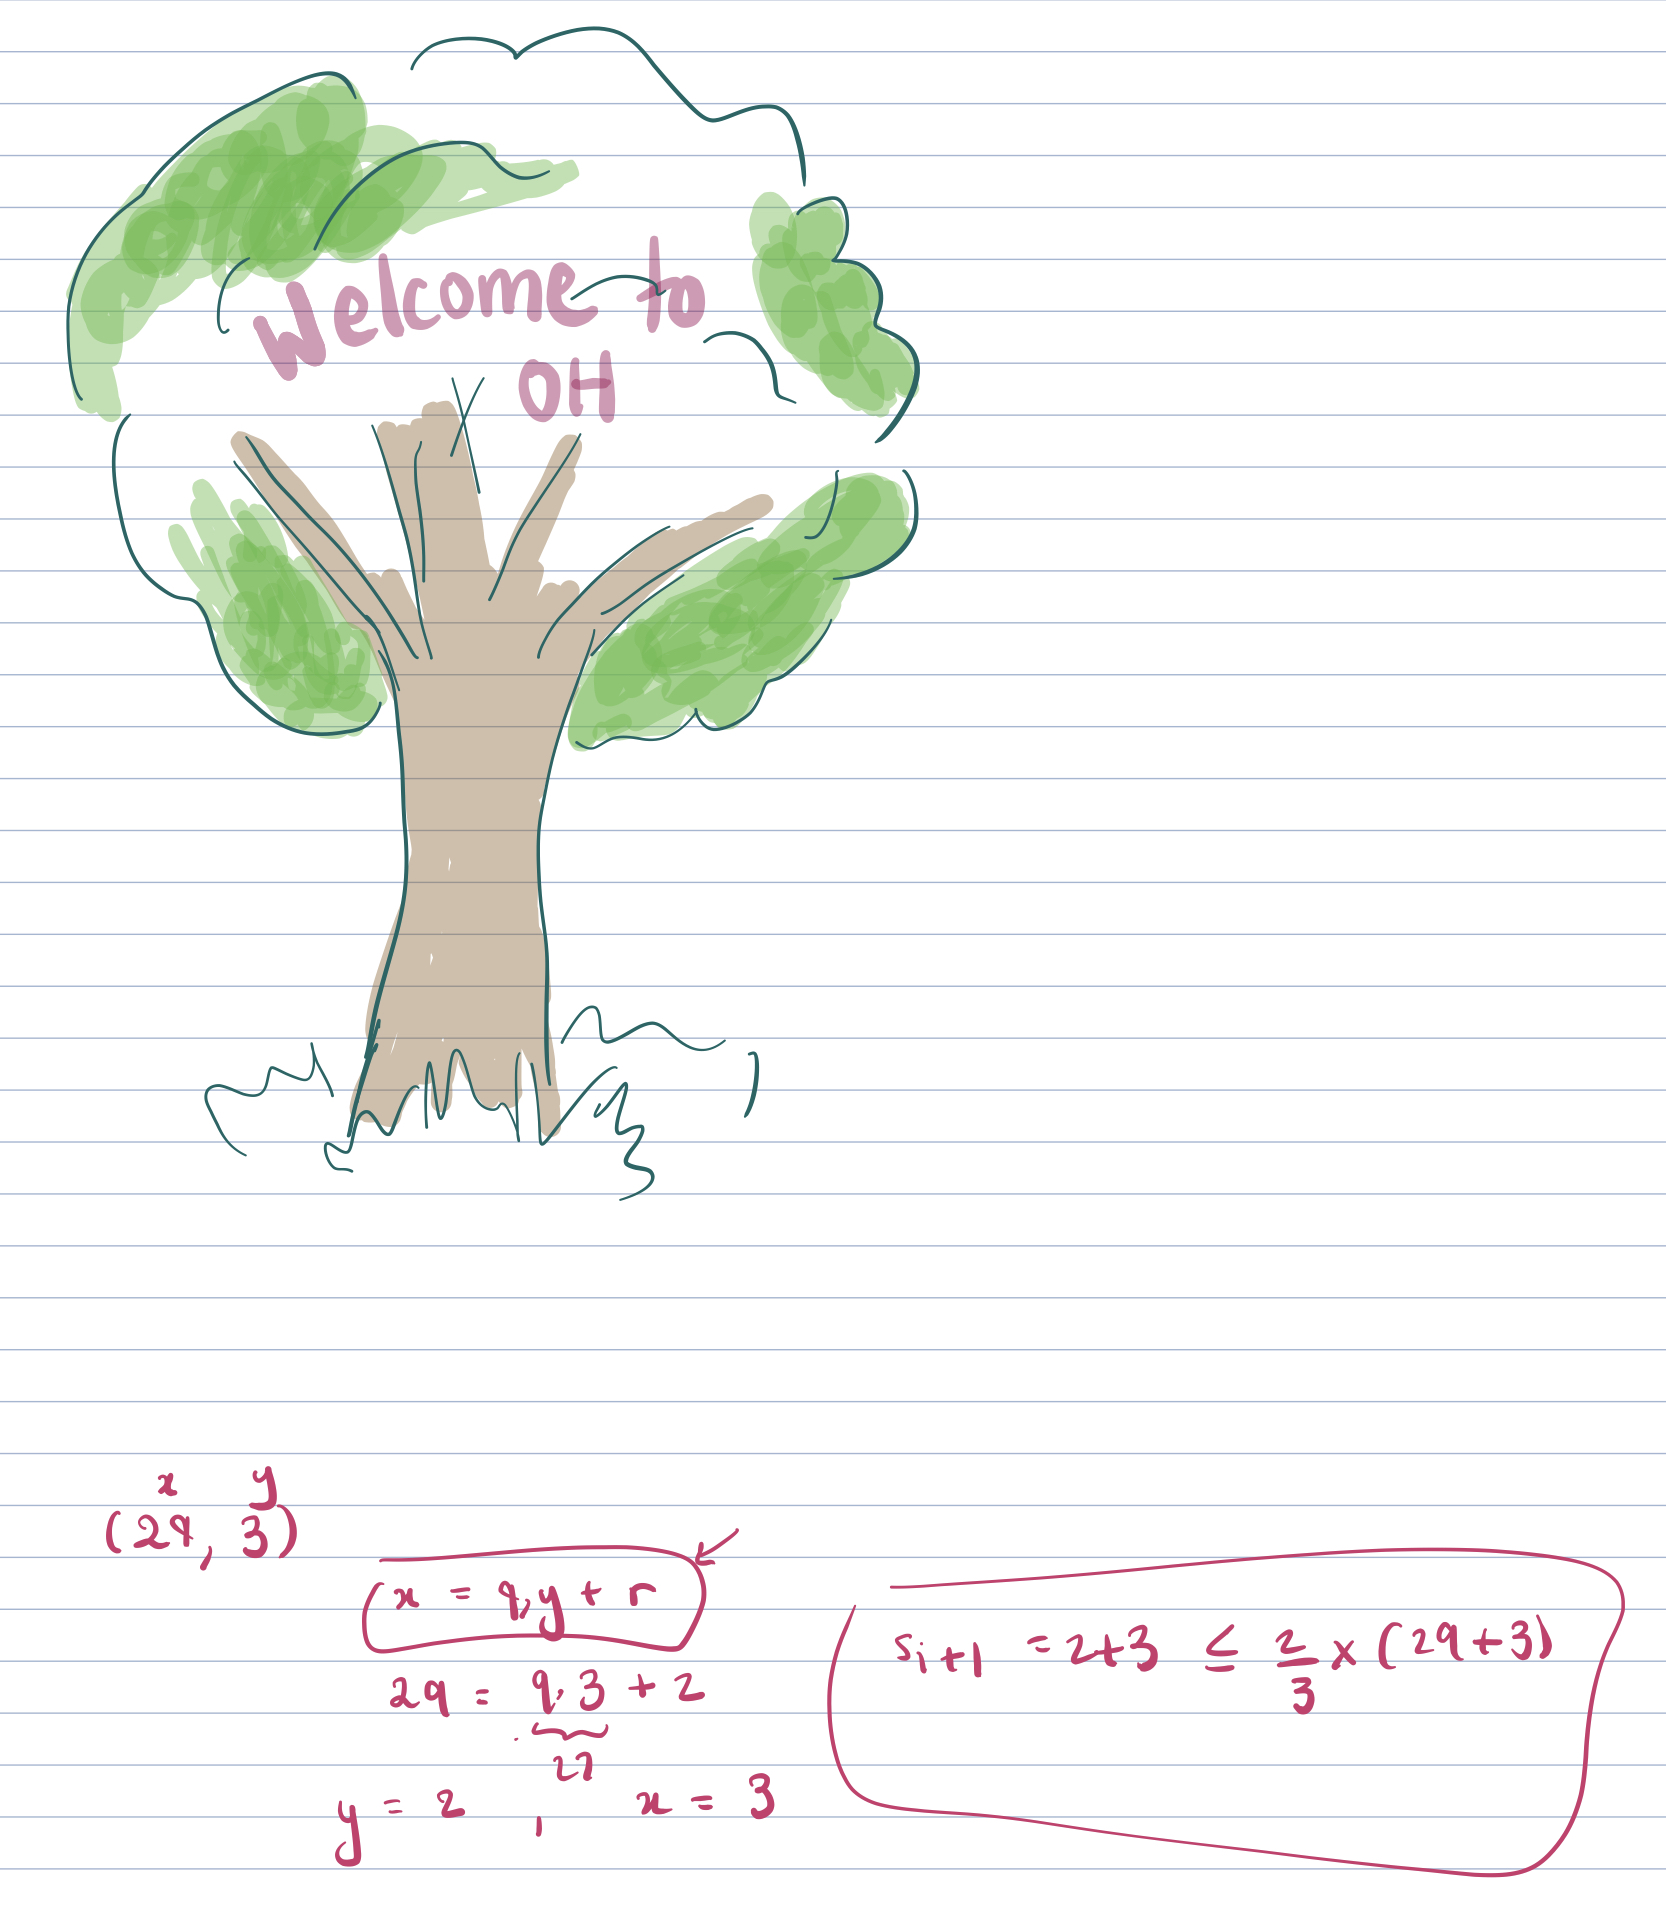 Welcome to
OH
x y
(29, 3)
x = q.y + r
29 = 9.3 + 2
27
y = 2 , x = 3
Si+1 = 2+3 ≤ 2/3 x (29+3)